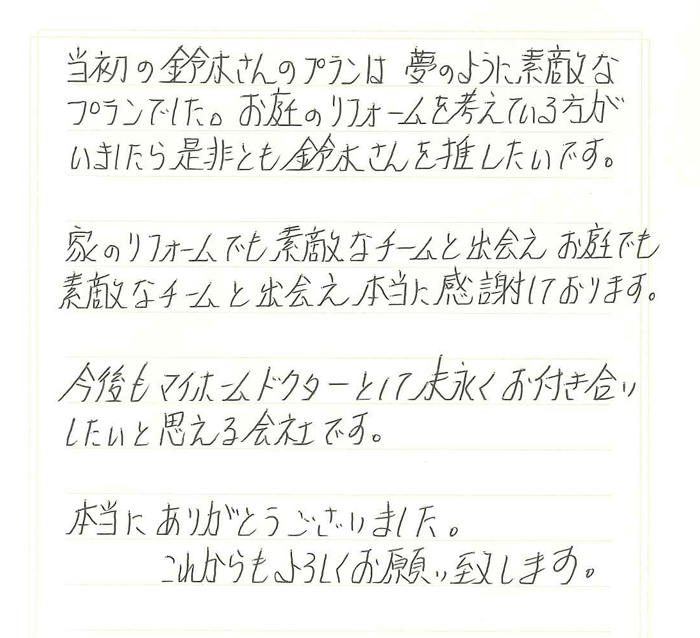 当初の鈴木さんのプランは 夢のように素敵な
プランでした。お庭のリフォームを考えている方が
いましたら是非とも鈴木さんを推したいです。
家のリフォームでも素敵なチームと出会え お庭でも
素敵なチームと出会え本当に感謝しております。
今後もマイホームドクターとして末永くお付き合い
したいと思える会社です。
本当にありがとうございました。
これからもよろしくお願い致します。